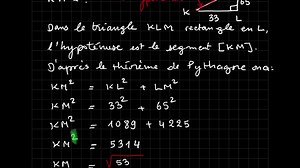 65
K
33
L
Dans le triangle KLM rectangle en L,
l'hypoténuse est le segment [KM].
D'après le théorème de Pythagore on a:
KM² = KL² + LM²
KM² = 33² + 65²
KM² = 1089 + 4225
KM² = 5314
KM = √53